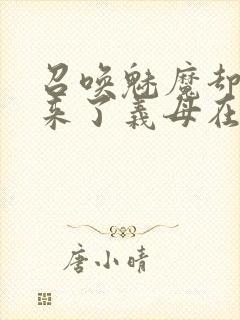 召唤魅魔却
来了義母在
唐小晴